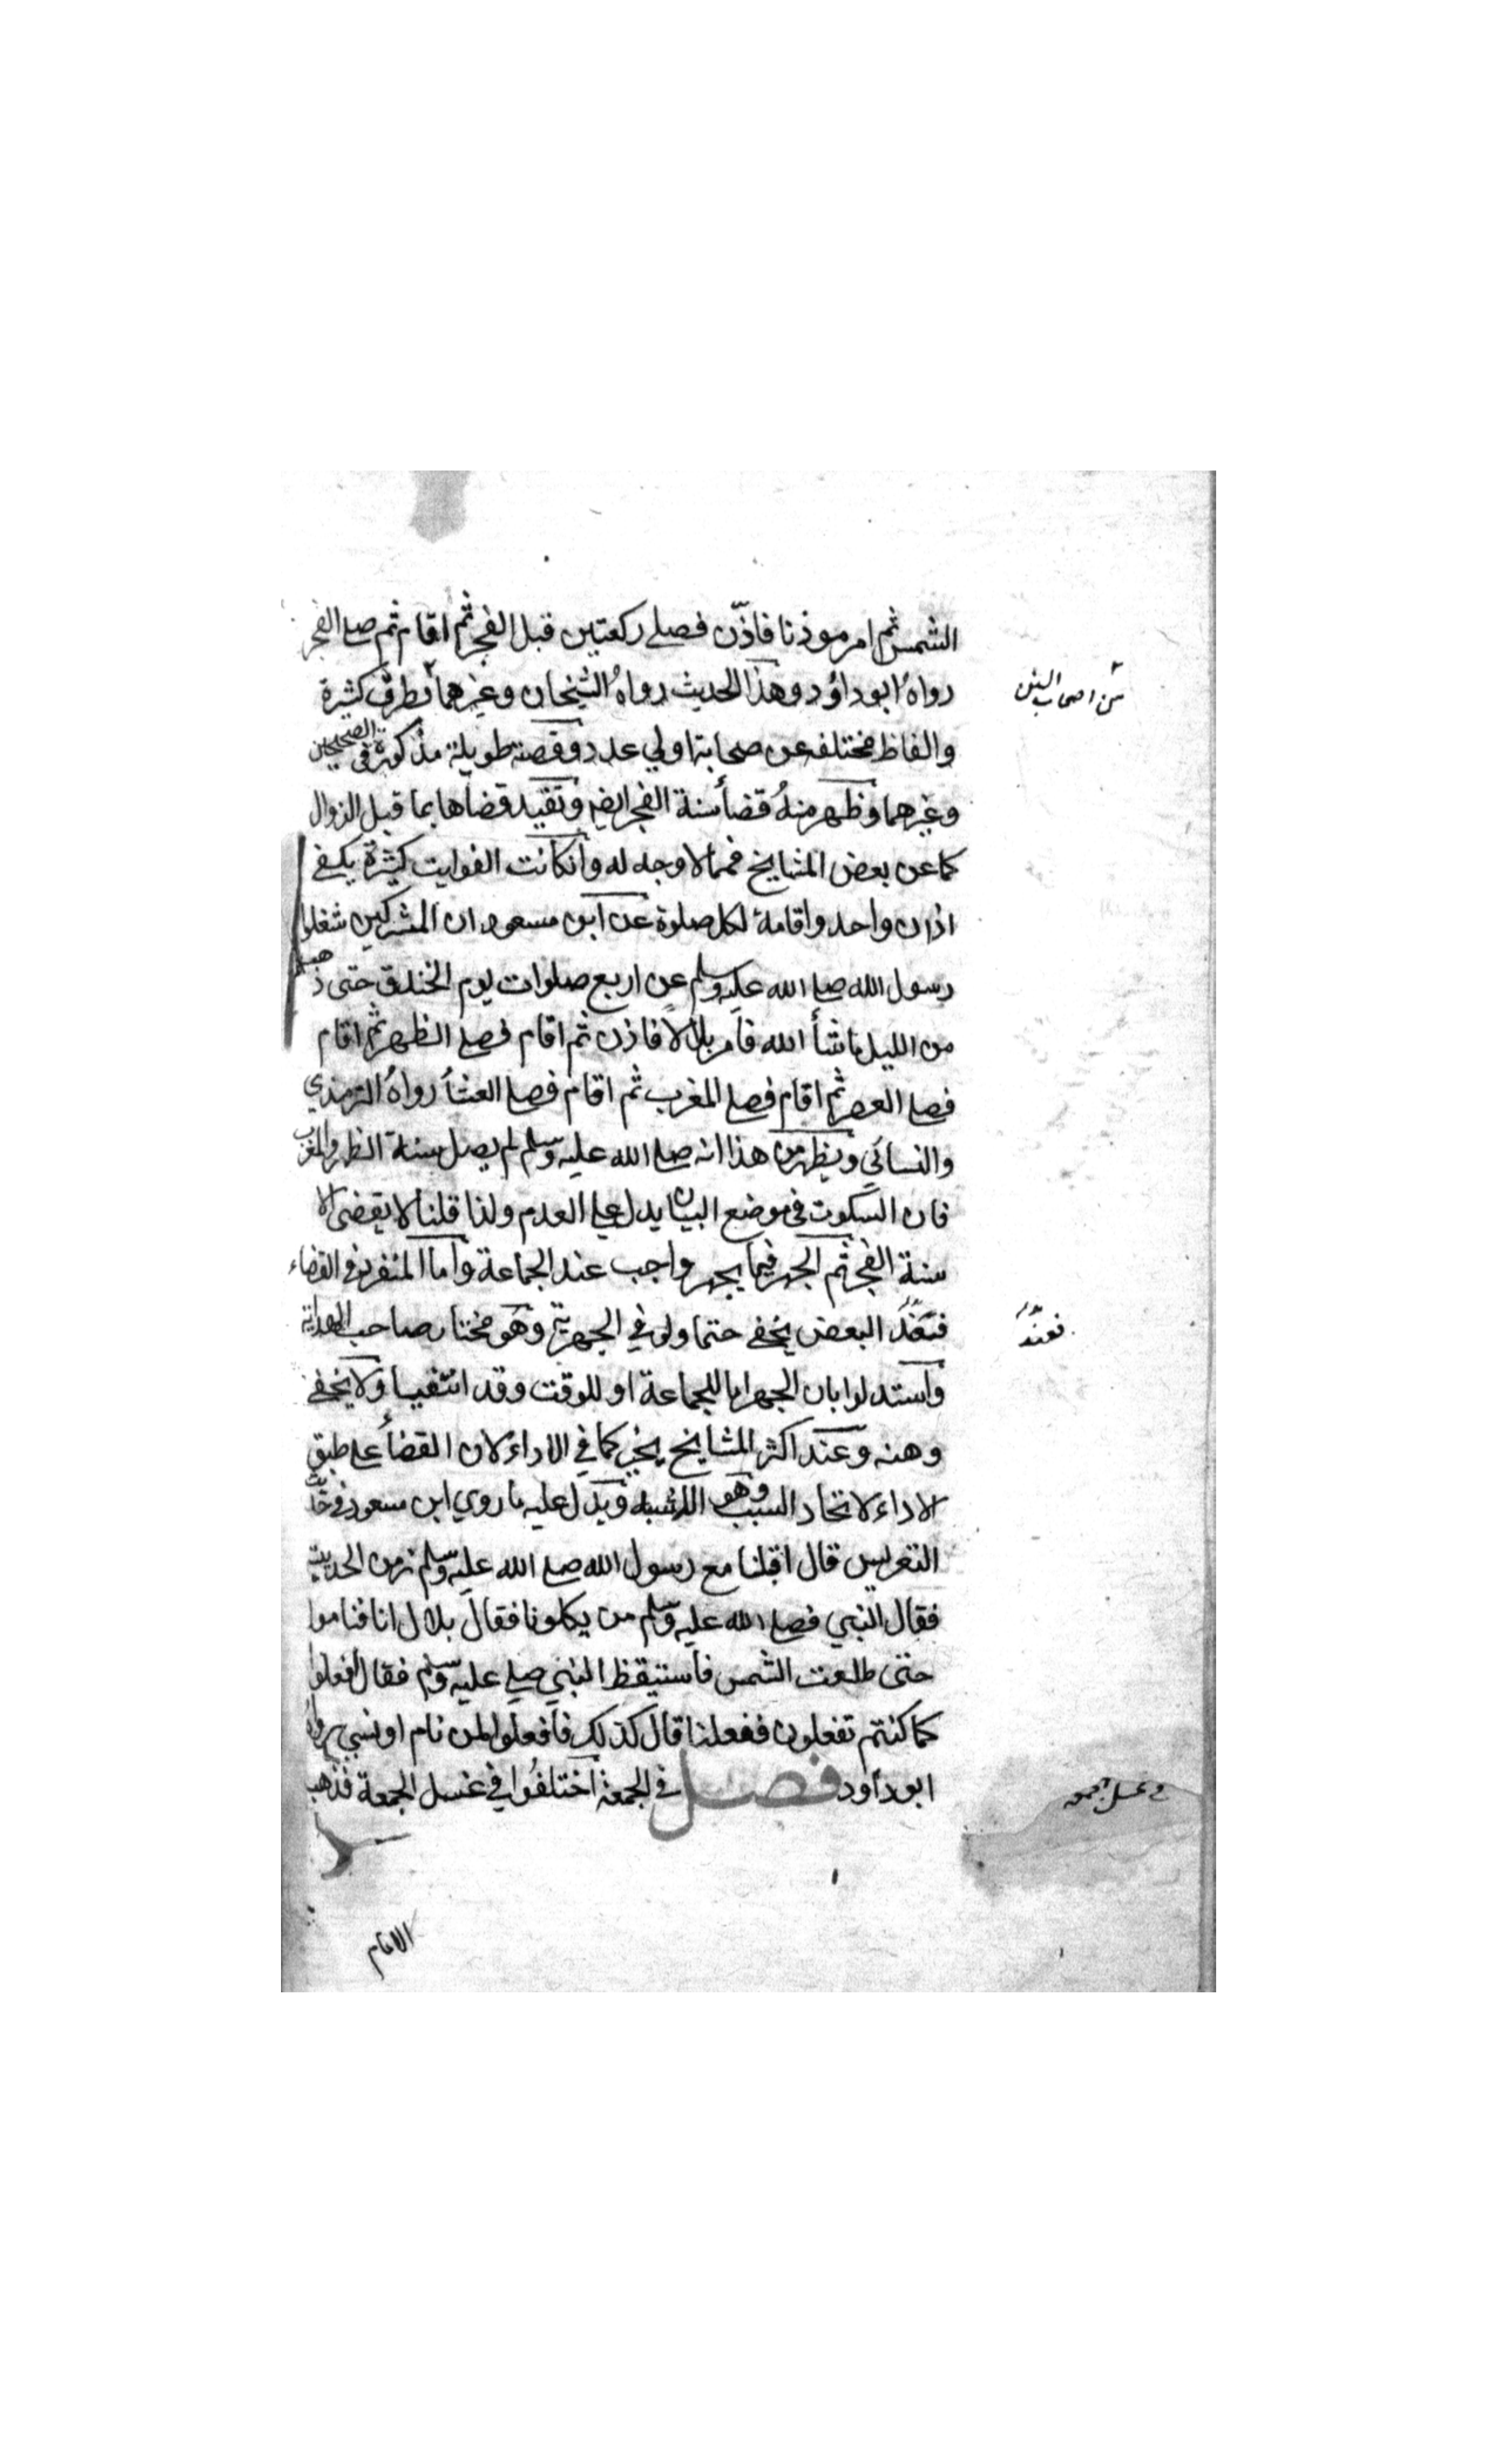 الشمس ثم امر موذنا فاذّن فصلے ركعتين قبل الفجر ثم اقام ثم صلے الفجر
رواهُ ابو داؤد وهذا الحديث رواهُ الشيخان وغيرهما بطرق كثيرة
من اصحاب السنن
والفاظ مختلفه عن صحابة اولي عدد وقصته طويلة مذكورة فى الصحيحين
وغيرهما وظهر منهُ قضأ سنة الفجر ايضا وتقييد قضاها بما قبل الزوال
كما عن بعض المشايخ فمما لا وجه له وانكانت الفوايت كثيرة يكفے
اذان واحد واقامة لكل صلوة عن ابن مسعود ان المشركين شغلوا
رسول الله صلے الله عليه وسلم عن اربع صلوات يوم الخندق حتى ذهب
من الليل ما شأ الله فامر بلالا فاذن ثم اقام فصلے الظهر ثم اقام
فصلے العصر ثم اقام فصلے المغرب ثم اقام فصلے العشأ رواهُ الترمذي
والنسائي ويظهر من هذا انه صلے الله عليه وسلم لم يصل سنة الظهر والمغرب
فان السكوت فى موضع البيان يدل علے العدم ولذا قلنا لا يقضى الا
سنة الفجر ثم الجهر فيما يجهر واجب عند الجماعة واما المنفرد فى القضاء
فعند البعض يخفے حتما ولو في الجهرية وهو مختار صاحب الهداية
فعند
واستدلوا بان الجهر اما للجماعة او للوقت وقد انتفيا ولا يخفے
وهنه وعند اكثر المشايخ يخير كما في الاداء لان القضأ علے طبق
الاداء لاتحاد السبب وهو الاشبه ويدل عليه ما روي ابن مسعود فى حديث
التعريس قال اقبلنا مع رسول الله صلے الله عليه وسلم زمن الحديبية
فقال النبي فصلے الله عليه وسلم من يكلونا فقال بلال انا فناموا
حتى طلعت الشمس فاستيقظ النبي صلے عليه وسلم فقال افعلوا
كما كنتم تفعلون ففعلنا قال كذلك فافعلوا لمن نام او نسي رواه
ابو داود فصل في الجمعة اختلفُوا في غسل الجمعة فذهب
في غسل الجمعه
الامام